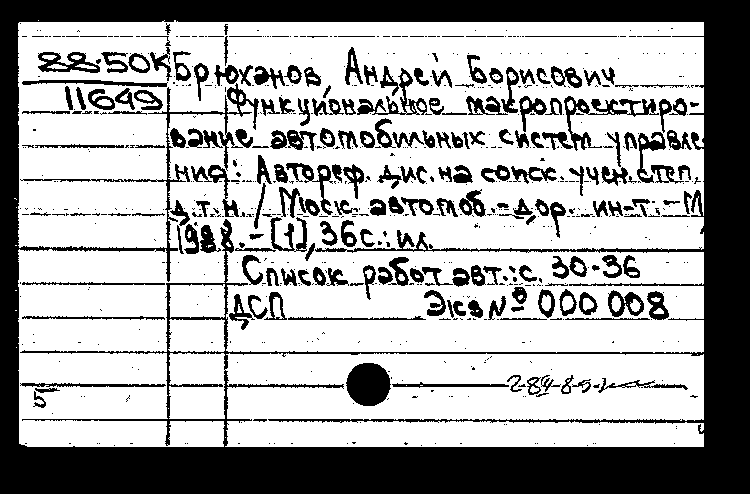 22.50К Брюханов, Андрей Борисович
11649 Функциональное макропроектиро-
вание автомобильных систем управле
ния: Автореф. дис. на соиск. учен. степ.
д.т.н. / Моск. автомоб.-дор. ин-т. - М
1988. - [1], 36с.: ил.
Список работ авт.: с. 30-36
ДСП Экз № 000 008
5